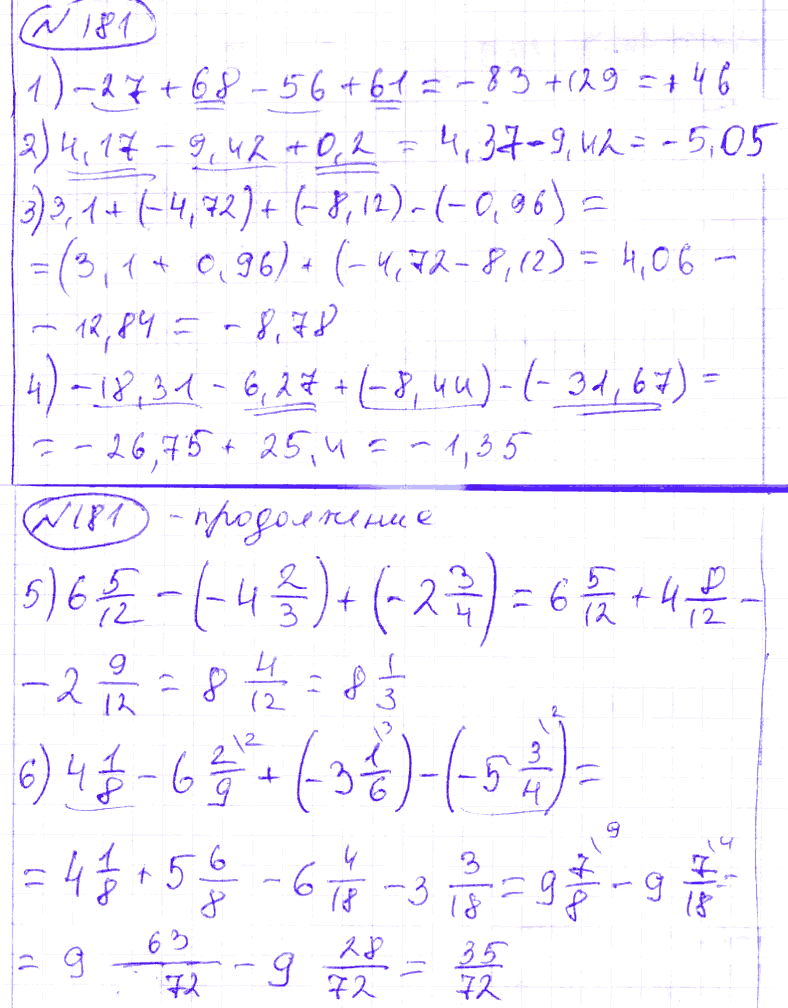 № 181
1) -27 + 68 - 56 + 61 = -83 + 129 = +46
2) 4,17 - 9,42 + 0,2 = 4,37 - 9,42 = -5,05
3) 3,1 + (-4,72) + (-8,12) - (-0,96) =
= (3,1 + 0,96) + (-4,72 - 8,12) = 4,06 -
- 12,84 = -8,78
4) -18,31 - 6,27 + (-8,44) - (-31,67) =
= -26,75 + 25,4 = -1,35
№ 181 - продолжение
5) 6 5/12 - (-4 2/3) + (-2 3/4) = 6 5/12 + 4 8/12 -
- 2 9/12 = 8 4/12 = 8 1/3
6) 4 1/8 - 6 2/9 \2 + (-3 1/6 \3) - (-5 3/4 \2) =
= 4 1/8 + 5 6/8 - 6 4/18 - 3 3/18 = 9 7/8 \9 - 9 7/18 \4 =
= 9 63/72 - 9 28/72 = 35/72